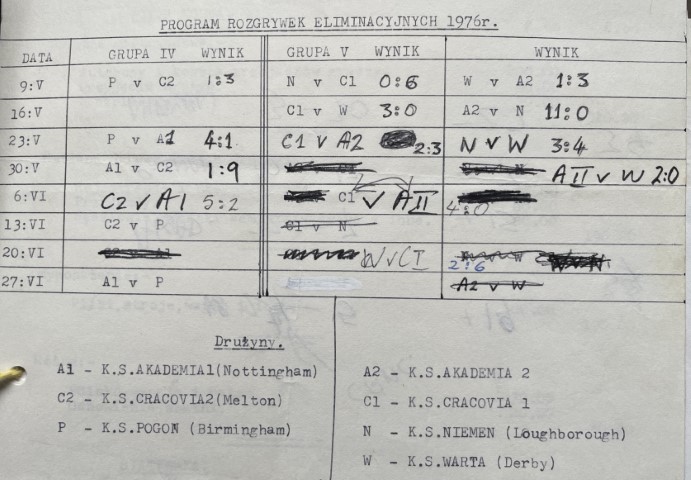 PROGRAM ROZGRYWEK ELIMINACYJNYCH 1976r.
DATA GRUPA IV WYNIK GRUPA V WYNIK WYNIK
9:V P v C2 1:3 N v C1 0:6 W v A2 1:3
16:V C1 v W 3:0 A2 v N 11:0
23:V P v A1 4:1 C1 v A2 2:3 N v W 3:4
30:V A1 v C2 1:9 AII v W 2:0
6:VI C2 v A1 5:2 C1 v AII 4:0
13:VI C2 v P C1 v N
20:VI W v CI 2:6
27:VI A1 v P A2 v W
Drużyny.
A1 - K.S.AKADEMIA1(Nottingham) A2 - K.S.AKADEMIA 2
C2 - K.S.CRACOVIA2(Melton) C1 - K.S.CRACOVIA 1
P - K.S.POGON (Birmingham) N - K.S.NIEMEN (Loughborough)
W - K.S.WARTA (Derby)